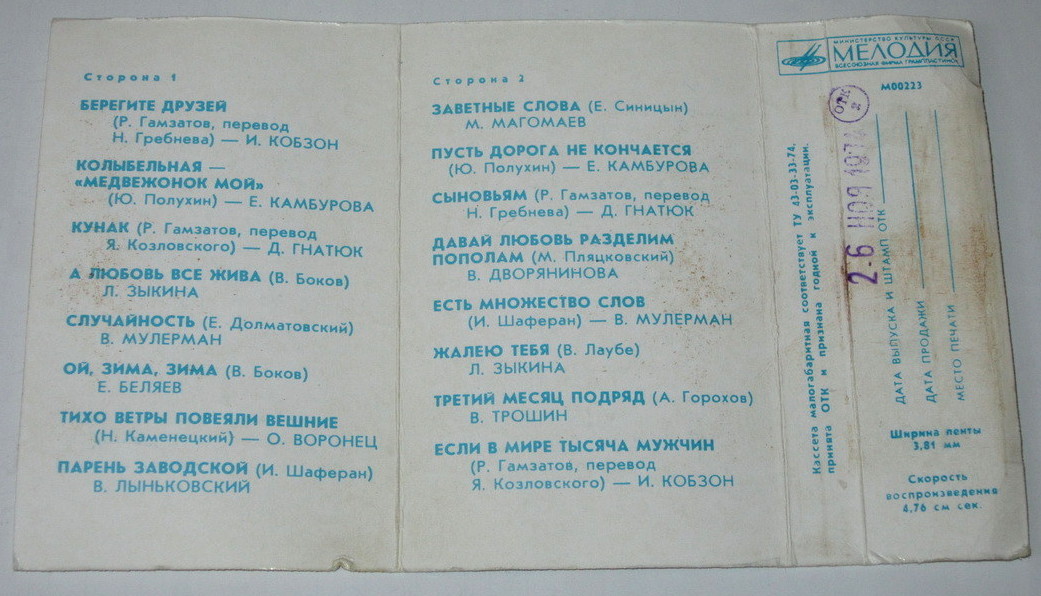 Сторона 1
БЕРЕГИТЕ ДРУЗЕЙ
(Р. Гамзатов, перевод
Н. Гребнева) — И. КОБЗОН
КОЛЫБЕЛЬНАЯ —
«МЕДВЕЖОНОК МОЙ»
(Ю. Полухин) — Е. КАМБУРОВА
КУНАК (Р. Гамзатов, перевод
Я. Козловского) — Д. ГНАТЮК
А ЛЮБОВЬ ВСЕ ЖИВА (В. Боков)
Л. ЗЫКИНА
СЛУЧАЙНОСТЬ (Е. Долматовский)
В. МУЛЕРМАН
ОЙ, ЗИМА, ЗИМА (В. Боков)
Е. БЕЛЯЕВ
ТИХО ВЕТРЫ ПОВЕЯЛИ ВЕШНИЕ
(Н. Каменецкий) — О. ВОРОНЕЦ
ПАРЕНЬ ЗАВОДСКОЙ (И. Шаферан)
В. ЛЫНЬКОВСКИЙ
Сторона 2
ЗАВЕТНЫЕ СЛОВА (Е. Синицын)
М. МАГОМАЕВ
ПУСТЬ ДОРОГА НЕ КОНЧАЕТСЯ
(Ю. Полухин) — Е. КАМБУРОВА
СЫНОВЬЯМ (Р. Гамзатов, перевод
Н. Гребнева) — Д. ГНАТЮК
ДАВАЙ ЛЮБОВЬ РАЗДЕЛИМ
ПОПОЛАМ (М. Пляцковский)
В. ДВОРЯНИНОВА
ЕСТЬ МНОЖЕСТВО СЛОВ
(И. Шаферан) — В. МУЛЕРМАН
ЖАЛЕЮ ТЕБЯ (В. Лаубе)
Л. ЗЫКИНА
ТРЕТИЙ МЕСЯЦ ПОДРЯД (А. Горохов)
В. ТРОШИН
ЕСЛИ В МИРЕ ТЫСЯЧА МУЖЧИН
(Р. Гамзатов, перевод
Я. Козловского) — И. КОБЗОН
МИНИСТЕРСТВО КУЛЬТУРЫ СССР
МЕЛОДИЯ
ВСЕСОЮЗНАЯ ФИРМА ГРАМПЛАСТИНОК
М00223
Кассета малогабаритная соответствует ТУ 43-03-33-74,
принята ОТК и признана годной к эксплуатации.
ОТК
2
2-6 НОЯ 1974
ДАТА ВЫПУСКА И ШТАМП ОТК
ДАТА ПРОДАЖИ
МЕСТО ПЕЧАТИ
Ширина ленты
3,81 мм
Скорость
воспроизведения
4,76 см сек.